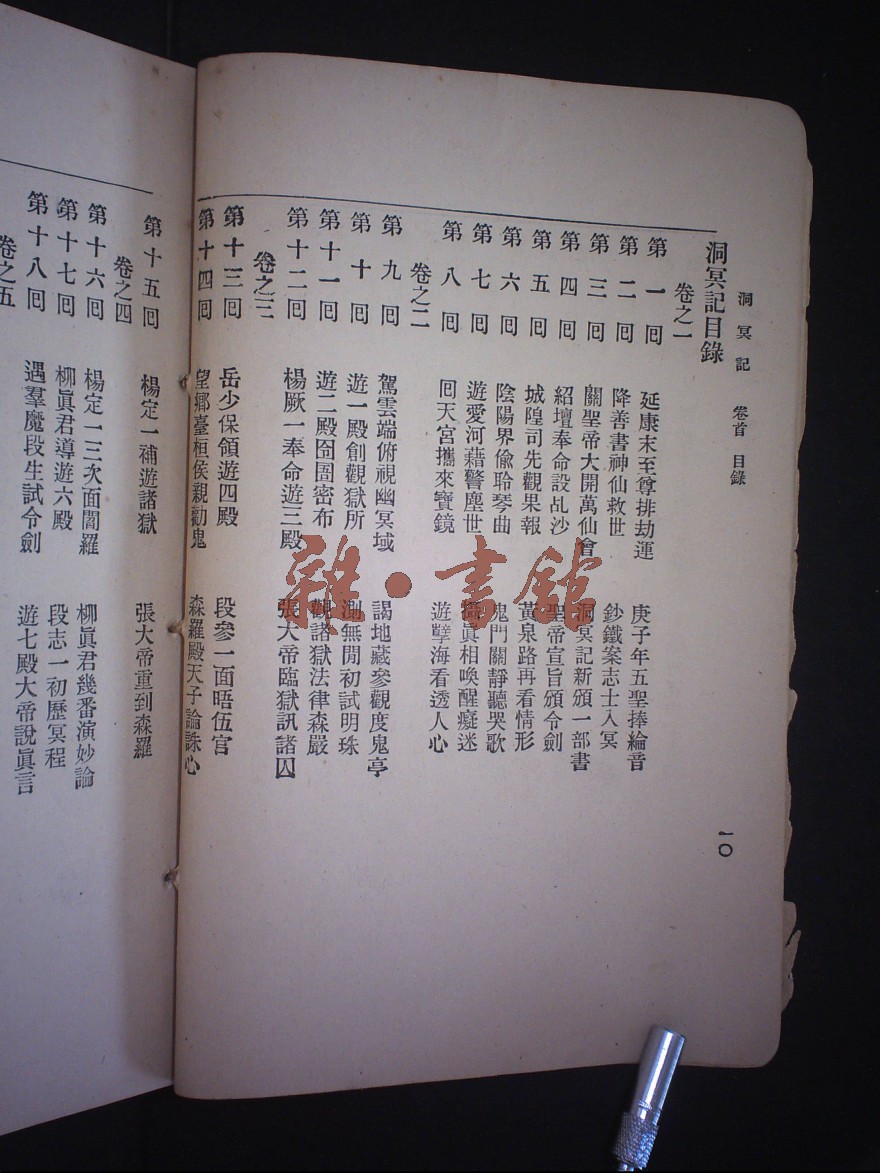 洞冥記 卷首 目錄
一〇
洞冥記目錄
卷之一
第一囘 延康末至尊排劫運 庚子年五聖捧綸音
第二囘 降善書神仙救世 鈔鐵案志士入冥
第三囘 關聖帝大開萬仙會 洞冥記新頒一部書
第四囘 紹壇奉命設乩沙 聖帝宣旨頒令劍
第五囘 城隍司先觀果報 黃泉路再看情形
第六囘 陰陽界偸聆琴曲 鬼門關靜聽哭歌
第七囘 遊愛河藉警塵世 真相喚醒癡迷
第八囘 囘天宮攜來寶鏡 遊孽海看透人心
卷之二
第九囘 駕雲端俯視幽冥域 謁地藏參觀度鬼亭
第十囘 遊一殿創觀獄所 測無閒初試明珠
第十一囘 遊二殿囹圄密布 觀諸獄法律森嚴
第十二囘 楊厥一奉命遊三殿 張大帝臨獄訊諸囚
卷之三
第十三囘 岳少保領遊四殿 段參一面晤伍官
第十四囘 望鄉臺桓侯親勸鬼 森羅殿天子論誅心
第十五囘 楊定一補遊諸獄 張大帝重到森羅
卷之四
第十六囘 楊定一三次面閻羅 柳眞君幾番演妙論
第十七囘 柳眞君導遊六殿 段志一初歷冥程
第十八囘 遇羣魔段生試令劍 遊七殿大帝說眞言
卷之五
雜·書館